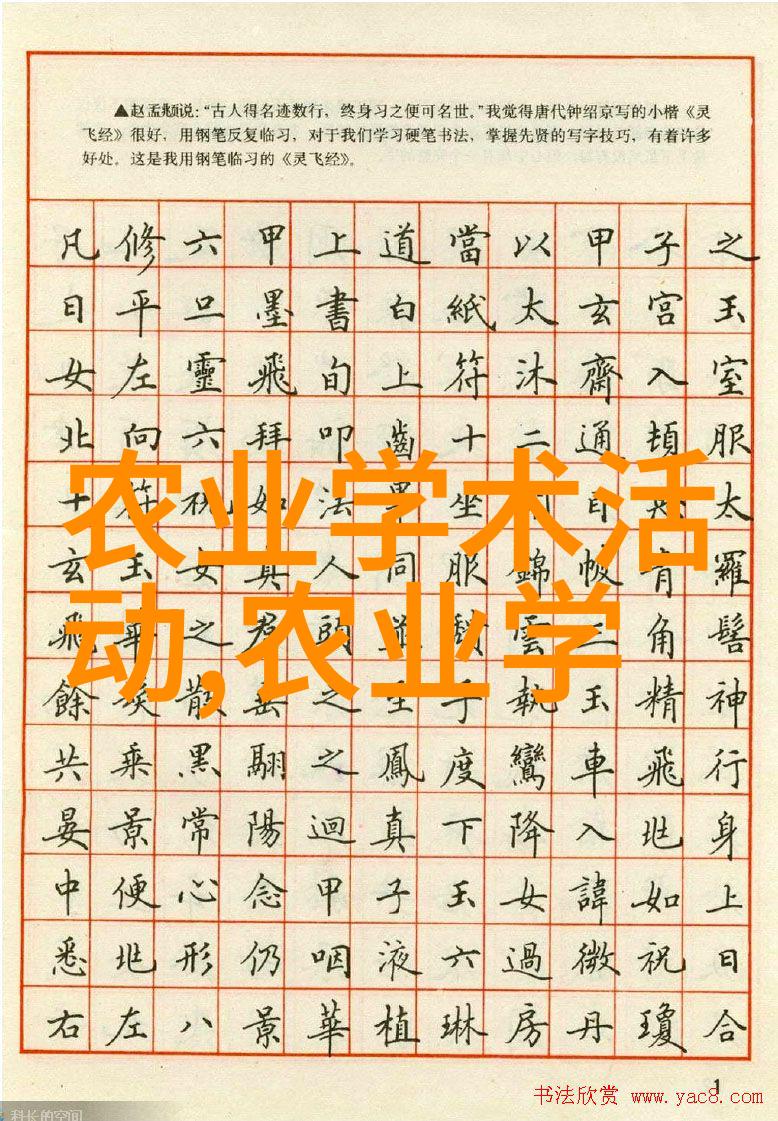 ▲赵孟頫说:“古人得名迹数行,终身习之便可名世。”我觉得唐代钟绍京写的小楷《灵
飞经》很好,用钢笔反复临习,对于我们学习硬笔书法,掌握先贤的写字技巧,有着许多
好处。这是我用钢笔临习的《灵飞经》。
凡修六甲上道當以甲子之
日平旦墨書白紙太玄宮玉
女左靈飛旬上符沐齋入室
北向六拜叩齒十二通頓服
十符祝如法畢坐目太
玄玉女真人同服錦帔青羅
飛華之雲三角髻
餘散垂之至手執玉精神
共乘黑翮之鳳度鸞車飛行
晏景常陽迴真下降入兆身
中便心念甲子玉女諱如上
悉兆形仍咽液六過微祝曰
右左八景華植琳房丹瓊合
农业学术活
动,农业学
1
书法欣赏 www.yac8.com
科长的空间